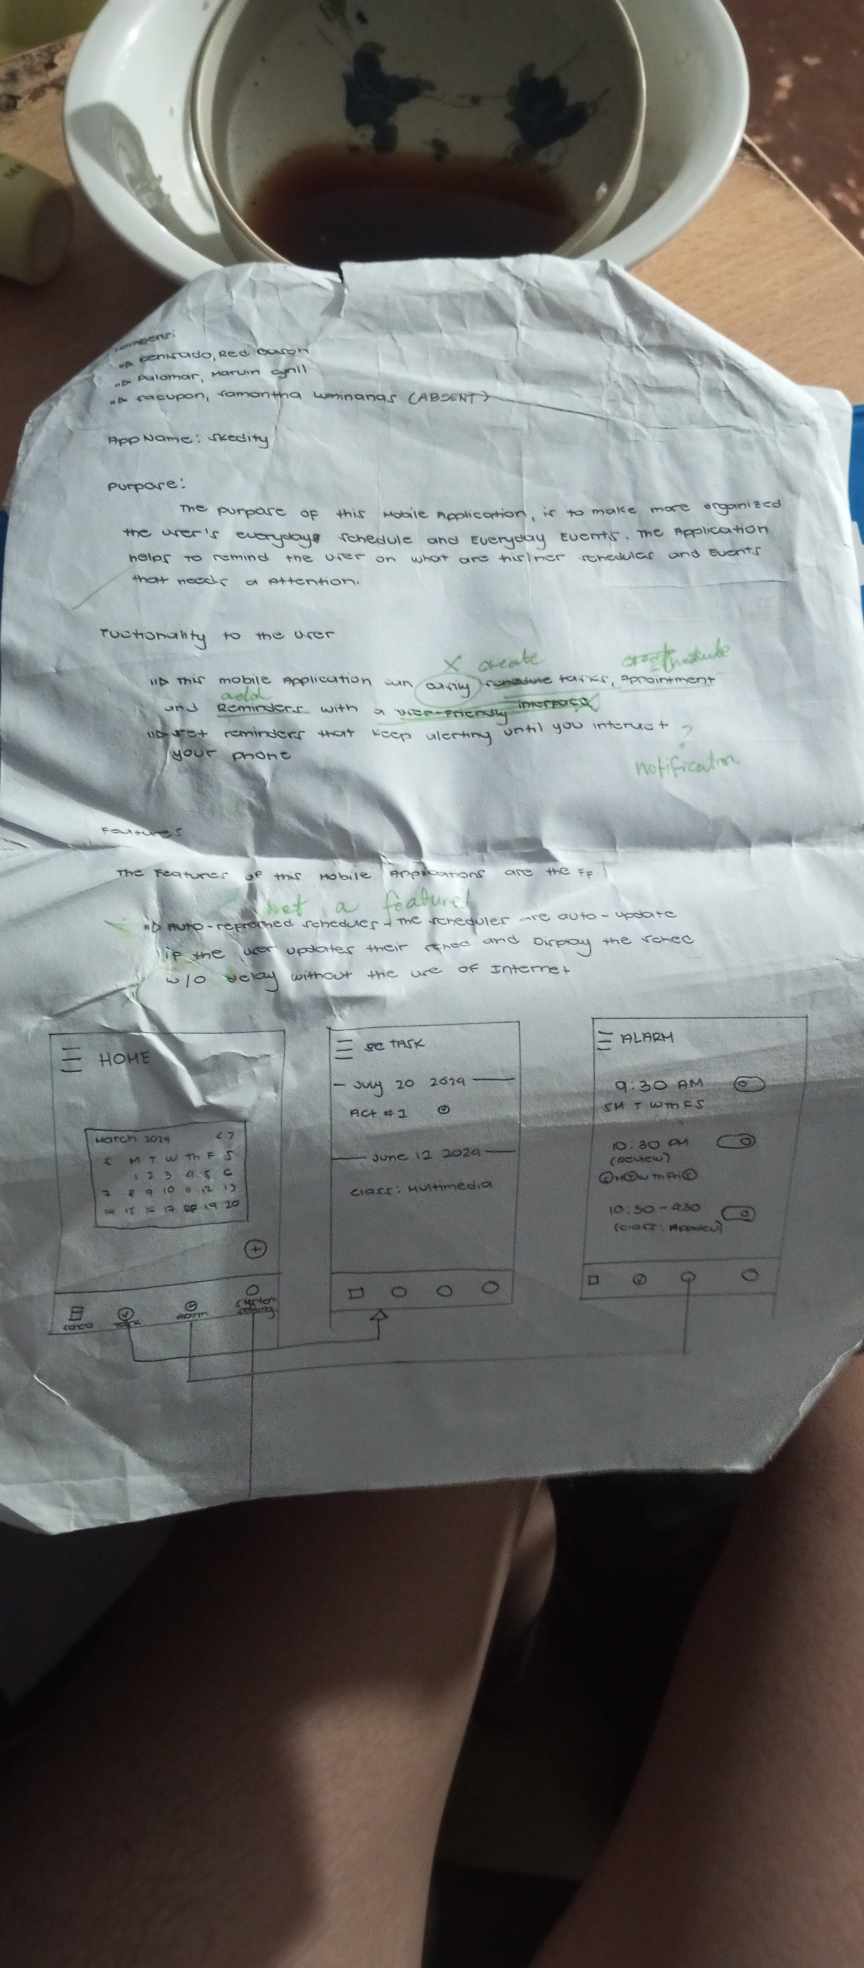 Red
Palomar, Marvin
Samantha Luminanas (ABSENT)
App Name: Skedity
Purpose:
The purpose of this Mobile Application, is to make more organized
the user's everydays schedule and Everyday Events. The Application
helps to remind the user on what are his/her schedules and Events
that needs a Attention.
Fuctionality to the user
X create
This mobile Application can easily tasks, appointment
add
and Reminders with a user-friendly interface
Set reminders that keep alerting until you interact ?
your phone
notification
Features
The Features of this Mobile Applications are the FF
not a feature!
schedules - The schedules are auto-update
if the user updates their sched and Display the sched
w/o Delay without the use of Internet
HOME
March 2024 < >
S M T W Th F S
1 2 3 4 5 6
7 8 9 10 11 12 13
14 15 16 17 18 19 20
+
Task
Alarm
TASK
July 20 2024
Act #1
June 12 2024
class: Multimedia
ALARM
9:30 AM
S M T W Th F S
10:30 AM
(Review)
10:30 - 4:30